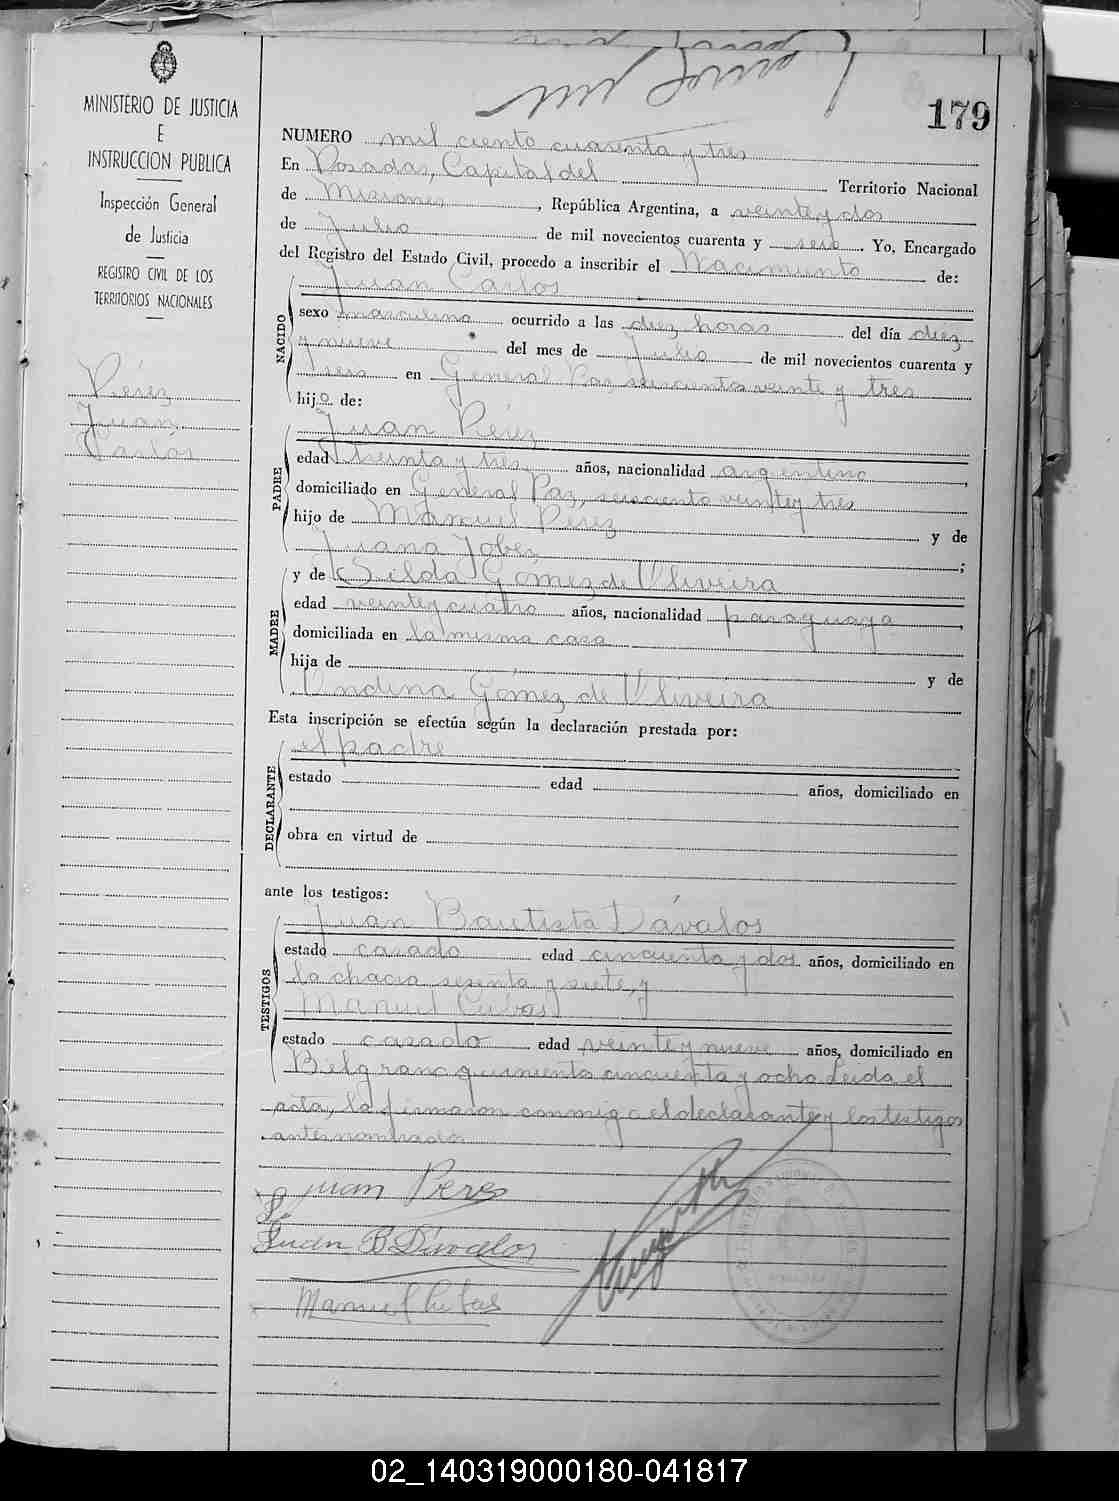 179
MINISTERIO DE JUSTICIA
E
INSTRUCCION PUBLICA
Inspección General
de Justicia
REGISTRO CIVIL DE LOS
TERRITORIOS NACIONALES
Pérez
Juan
Carlos
NUMERO mil ciento cuarenta y tres
En Posadas, Capital del Territorio Nacional
de Misiones, República Argentina, a veinte y dos
de Julio de mil novecientos cuarenta y seis. Yo, Encargado
del Registro del Estado Civil, procedo a inscribir el Nacimiento de:
NACIDO
Juan Carlos
sexo masculino ocurrido a las diez horas del día diez
y nueve del mes de Julio de mil novecientos cuarenta y
seis en General Paz seiscientos veinte y tres
hijo de:
PADRE
Juan Pérez
edad treinta y tres años, nacionalidad argentino,
domiciliado en General Paz, seiscientos veinte y tres
hijo de Manuel Pérez y de
Juana;
MADRE
y de Gómez de Oliveira
edad veinte y cuatro años, nacionalidad paraguaya,
domiciliada en la misma casa
hija de y de
Gómez de Oliveira
Esta inscripción se efectúa según la declaración prestada por:
DECLARANTE
el padre
estado edad años, domiciliado en
obra en virtud de
ante los testigos:
TESTIGOS
Juan Bautista Dávalos
estado casado edad cincuenta y dos años, domiciliado en
la chacra sesenta y siete, y
Manuel Cuevas
estado casado edad veinte y nueve años, domiciliado en
Belgrano quinientos cincuenta y ocho Leida el
acta, la firmaron conmigo el declarante y los testigos
antes nombrados
Juan Peres
Juan B Dávalos
Manuel
02_140319000180-041817